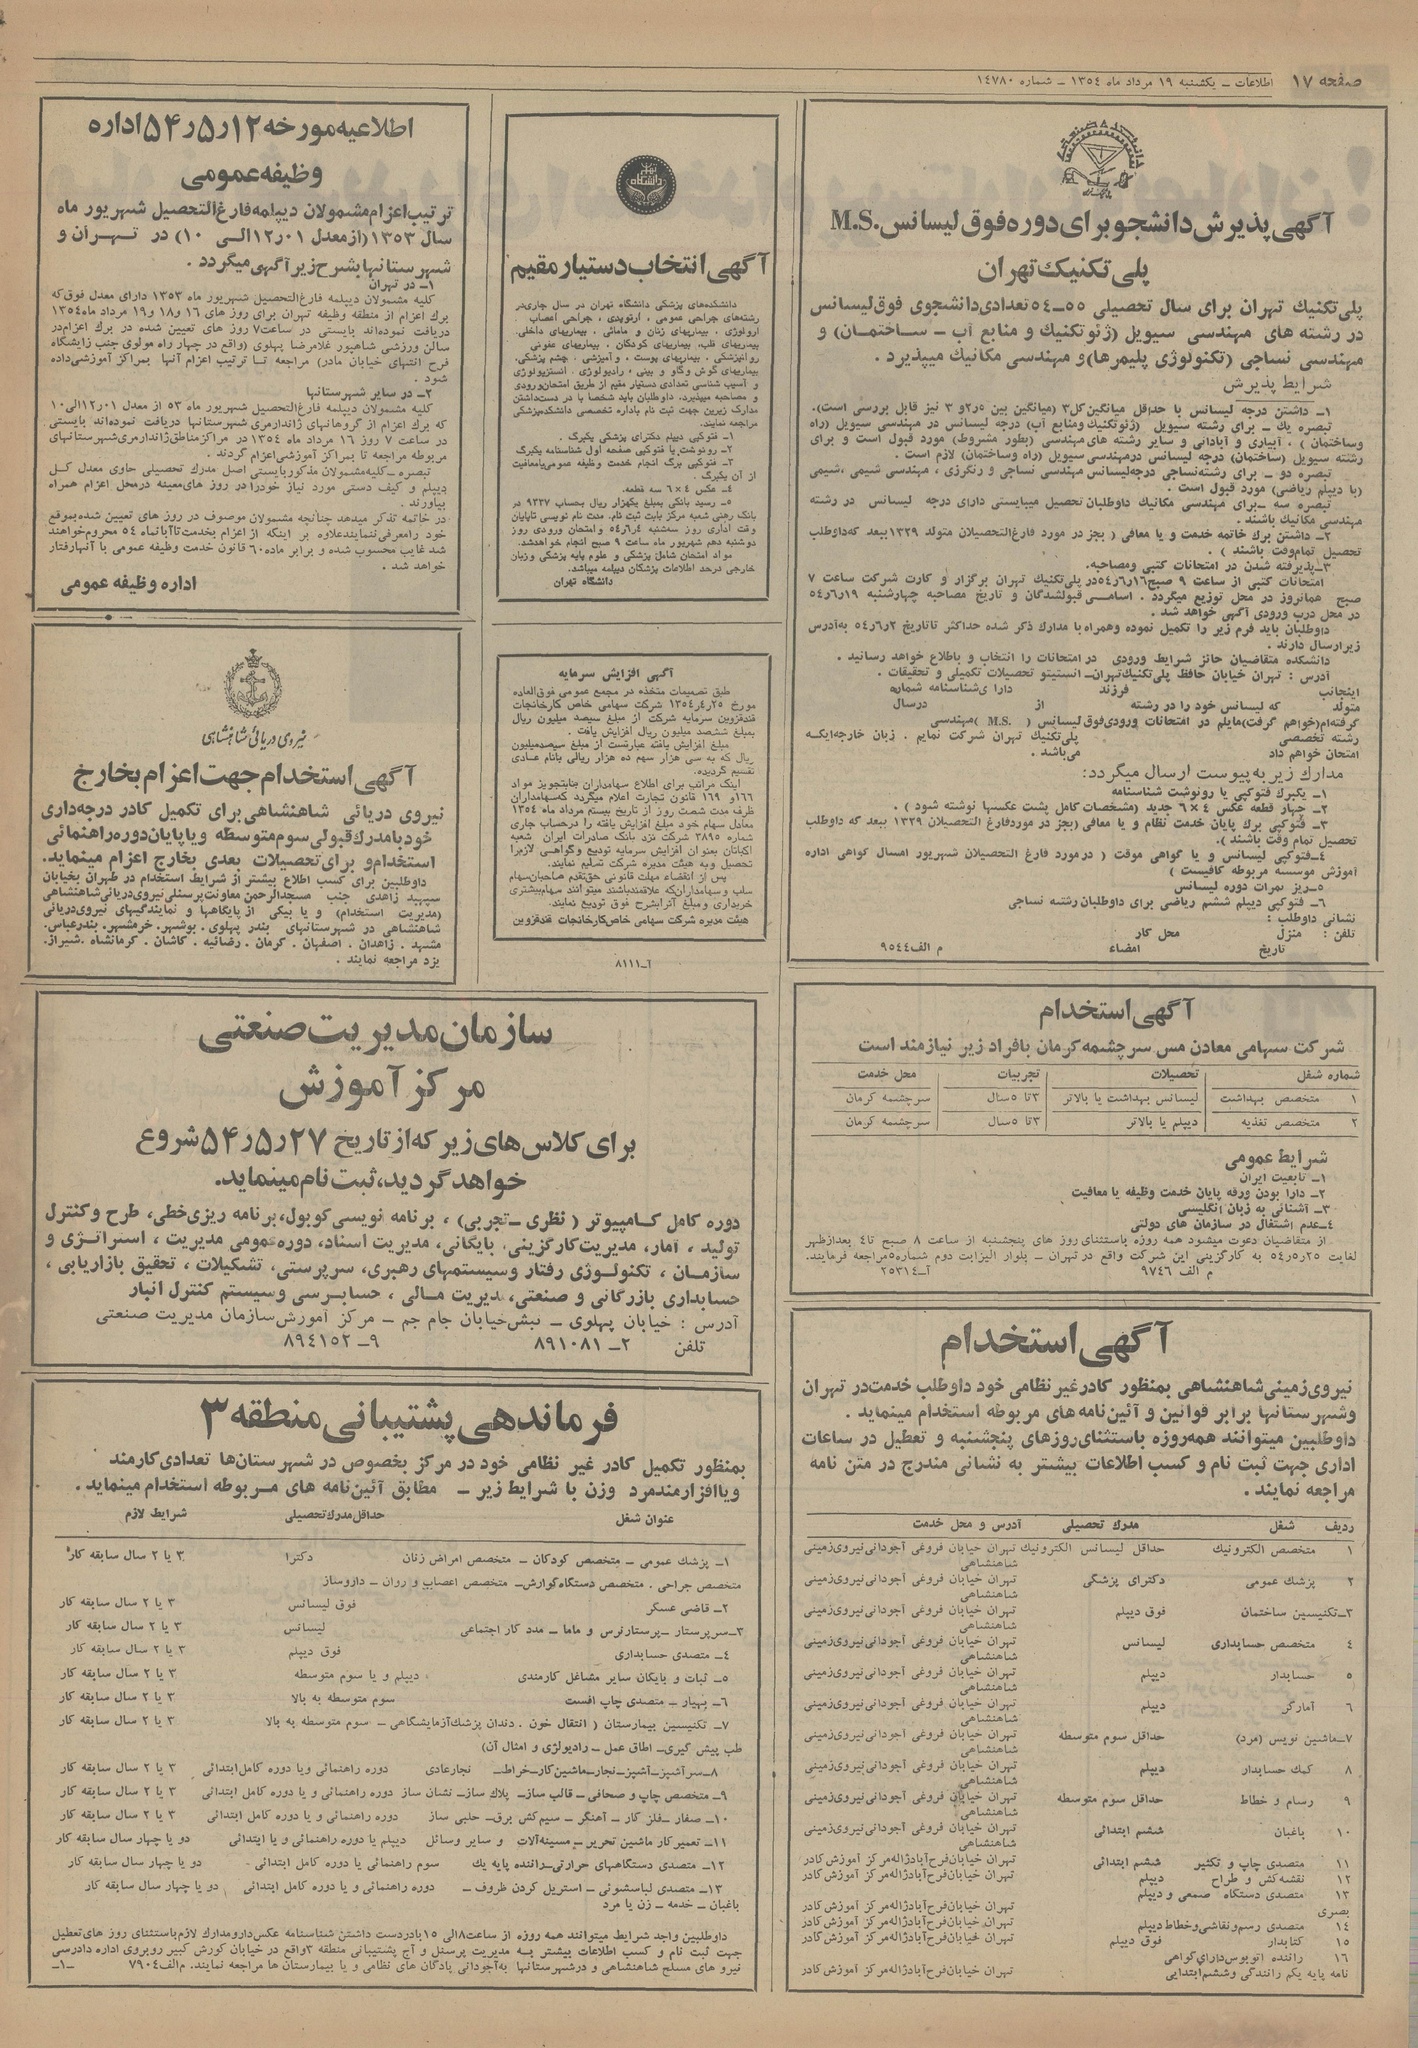 صفحه ۱۷
اطلاعات ـ یکشنبه ۱۹ مرداد ماه ۱۳۵۴ ـ شماره ۱۴۷۸۰
آگهی پذیرش دانشجو برای دوره فوق لیسانس M.S.
پلی تکنیک تهران
پلی تکنیک تهران برای سال تحصیلی ۵۵ـ۵٤ تعدادی دانشجوی فوق لیسانس
در رشته های مهندسی سیویل (ژئوتکنیک و منابع آب ـ ساختمان) و
مهندسی نساجی (تکنولوژی پلیمرها) و مهندسی مکانیک میپذیرد .
شرایط پذیرش
۱ـ داشتن درجه لیسانس با حداقل میانگین کل ۳ (میانگین بین ۵ر۲ و ۳ نیز قابل بررسی است).
تبصره یک ـ برای رشته سیویل (ژئوتکنیک و منابع آب) درجه لیسانس در مهندسی سیویل (راه
وساختمان) ، آبیاری و آبادانی و سایر رشته های مهندسی (بطور مشروط) مورد قبول است و برای
رشته سیویل (ساختمان) درجه لیسانس در مهندسی سیویل (راه وساختمان) لازم است .
تبصره دو ـ برای رشته نساجی درجه لیسانس مهندسی نساجی و رنگرزی ، مهندسی شیمی ، شیمی
(با دیپلم ریاضی) مورد قبول است .
تبصره سه ـ برای مهندسی مکانیک داوطلبان تحصیل میبایستی دارای درجه لیسانس در رشته
مهندسی مکانیک باشند .
۲ـ داشتن برک خاتمه خدمت و یا معافی ( بجز در مورد فارغ التحصیلان متولد ۱۳۳۹ ببعد که داوطلب
تحصیل تمام وقت باشند ) .
۳ـ پذیرفته شدن در امتحانات کتبی ومصاحبه.
امتحانات کتبی از ساعت ۹ صبح ۱۶ر٦ر٥٤ در پلی تکنیک تهران برگزار و کارت شرکت ساعت ۷
صبح همانروز در محل توزیع میگردد . اسامی قبولشدگان و تاریخ مصاحبه چهارشنبه ۱۹ر٦ر٥٤
در محل درب ورودی آگهی خواهد شد .
داوطلبان باید فرم زیر را تکمیل نموده وهمراه با مدارک ذکر شده حداکثر تاتاریخ ۲ر٦ر٥٤ به آدرس
زیر ارسال دارند .
دانشکده متقاضیان حائز شرایط ورودی در امتحانات را انتخاب و باطلاع خواهد رسانید .
آدرس : تهران خیابان حافظ پلی تکنیک تهران ـ انستیتو تحصیلات تکمیلی و تحقیقات .
اینجانب فرزند دارای شناسنامه شماره
متولد که لیسانس خود را در رشته از درسال
گرفته ام (خواهم گرفت) مایلم در امتحانات ورودی فوق لیسانس ( M.S. ) مهندسی
رشته تخصصی پلی تکنیک تهران شرکت نمایم . زبان خارجه ایکه
امتحان خواهم داد می باشد .
مدارک زیر به پیوست ارسال میگردد:
۱ـ یکبرک فتوکپی یا رونوشت شناسنامه
۲ـ چهار قطعه عکس ٤ × ٦ جدید (مشخصات کامل پشت عکسها نوشته شود ) .
۳ـ فتوکپی برك پایان خدمت نظام و یا معافی (بجز در مورد فارغ التحصیلان ۱۳۳۹ ببعد که داوطلب
تحصیل تمام وقت باشند ).
٤ـ فتوکپی لیسانس و یا گواهی موقت ( در مورد فارغ التحصیلان شهریور امسال گواهی اداره
آموزش موسسه مربوطه کافیست )
۵ـ ریز نمرات دوره لیسانس
٦ـ فتوکپی دیپلم ششم ریاضی برای داوطلبان رشته نساجی
نشانی داوطلب :
تلفن : منزل محل کار
تاریخ امضاء م الف ۹۵٤٤
آگهی استخدام
شرکت سهامی معادن مس سرچشمه کرمان با افراد زیر نیازمند است
شماره شغل تحصیلات تجربیات محل خدمت
۱ متخصص بهداشت لیسانس بهداشت یا بالاتر ۳ تا ۵ سال سرچشمه کرمان
۲ متخصص تغذیه دیپلم یا بالاتر ۳ تا ۵ سال سرچشمه کرمان
شرایط عمومی
۱ـ تابعیت ایران
۲ـ دارا بودن ورقه پایان خدمت وظیفه یا معافیت
۳ـ آشنائی به زبان انگلیسی
٤ـ عدم اشتغال در سازمان های دولتی
از متقاضیان دعوت میشود همه روزه باستثنای روز های پنجشنبه از ساعت ۸ صبح تا ٤ بعدازظهر
لغایت ۲۵ر٥ر٥٤ به کارگزینی این شرکت واقع در تهران ـ بلوار الیزابت دوم شماره ۵ مراجعه فرمایند.
م الف ۹۷٤٦ آـ۲۵۳۱٤
آگهی استخدام
نیروی زمینی شاهنشاهی بمنظور کادر غیر نظامی خود داوطلب خدمت در تهران
وشهرستانها برابر قوانین و آئین نامه های مربوطه استخدام مینماید .
داوطلبین میتوانند همه روزه باستثنای روزهای پنجشنبه و تعطیل در ساعات
اداری جهت ثبت نام و کسب اطلاعات بیشتر به نشانی مندرج در متن نامه
مراجعه نمایند .
ردیف شغل مدرك تحصیلی آدرس و محل خدمت
۱ متخصص الکترونیک حداقل لیسانس الکترونیک تهران خیابان فروغی آجودانی نیروی زمینی
شاهنشاهی
۲ پزشك عمومی دکترای پزشکی تهران خیابان فروغی آجودانی نیروی زمینی
شاهنشاهی
۳ـ تکنیسین ساختمان فوق دیپلم تهران خیابان فروغی آجودانی نیروی زمینی
شاهنشاهی
٤ متخصص حسابداری لیسانس تهران خیابان فروغی آجودانی نیروی زمینی
شاهنشاهی
۵ حسابدار دیپلم تهران خیابان فروغی آجودانی نیروی زمینی
شاهنشاهی
٦ آمارگر دیپلم تهران خیابان فروغی آجودانی نیروی زمینی
شاهنشاهی
۷ـ ماشین نویس (مرد) حداقل سوم متوسطه تهران خیابان فروغی آجودانی نیروی زمینی
شاهنشاهی
۸ کمك حسابدار دیپلم تهران خیابان فروغی آجودانی نیروی زمینی
شاهنشاهی
۹ رسام و خطاط حداقل سوم متوسطه تهران خیابان فروغی آجودانی نیروی زمینی
شاهنشاهی
۱۰ باغبان ششم ابتدائی تهران خیابان فروغی آجودانی نیروی زمینی
شاهنشاهی
۱۱ متصدی چاپ و تکثیر ششم ابتدائی تهران خیابان فرح آباد ژاله مرکز آموزش کادر
۱۲ نقشه کش و طراح دیپلم تهران خیابان فرح آباد ژاله مرکز آموزش کادر
۱۳ متصدی دستگاه سمعی و دیپلم
بصری تهران خیابان فرح آباد ژاله مرکز آموزش کادر
۱٤ متصدی رسم ونقاشی وخطاط دیپلم تهران خیابان فرح آباد ژاله مرکز آموزش کادر
۱۵ کتابدار فوق دیپلم تهران خیابان فرح آباد ژاله مرکز آموزش کادر
۱٦ راننده اتوبوس دارای گواهی
نامه پایه یکم رانندگی وششم ابتدایی تهران خیابان فرح آباد ژاله مرکز آموزش کادر
آگهی انتخاب دستیار مقیم
دانشکده های پزشکی دانشگاه تهران در سال جاری در
رشته های جراحی عمومی ، ارتوپدی ، جراحی اعصاب
ارولوژی ، بیماریهای زنان و مامائی ، بیماریهای داخلی،
بیماریهای قلب، بیماریهای کودکان ، بیماریهای عفونی
روانپزشکی ، بیماریهای پوست ، و آمیزشی ، چشم پزشکی،
بیماریهای گوش وگلو و بینی ، رادیولوژی ، انستزیولوژی
و آسیب شناسی تعدادی دستیار مقیم از طریق امتحان ورودی
و مصاحبه میپذیرد، داوطلبان باید شخصا با در دست داشتن
مدارک زیرین جهت ثبت نام باداره تخصصی دانشکده پزشکی
مراجعه نمایند.
۱ـ فتوکپی دیپلم دکترای پزشکی یکبرگ .
۲ـ رونوشت یا فتوکپی صفحه اول شناسنامه یکبرگ
۳ـ فتوکپی برگ انجام خدمت وظیفه عمومی یا معافیت
از آن یکبرگ .
٤ـ عکس ٤ × ٦ سه قطعه.
۵ـ رسید بانکی بمبلغ یکهزار ریال بحساب ۹۳۳۷ در
بانک رهنی شعبه مرکز بابت ثبت نام. مدت نام نویسی تاپایان
وقت اداری روز سه شنبه ٤ر٦ر٥٤ و امتحان ورودی روز
دوشنبه دهم شهریور ماه ساعت ۹ صبح انجام خواهد شد.
مواد امتحان شامل پزشکی و علوم پایه پزشکی وزبان
خارجی درحد اطلاعات پزشکان دیپلمه میباشد.
دانشگاه تهران
آگهی افزایش سرمایه
طبق تصمیمات متخذه در مجمع عمومی فوق العاده
مورخ ۲۵ر٤ر۱۳۵٤ شرکت سهامی خاص کارخانجات
قندقزوین سرمایه شرکت از مبلغ سیصد میلیون ریال
بمبلغ ششصد میلیون ریال افزایش یافت .
مبلغ افزایش یافته عبارتست از مبلغ سیصد میلیون
ریال که به سی هزار سهم ده هزار ریالی بانام عادی
تقسیم گردیده.
اینک مراتب برای اطلاع سهامداران بتجویز مواد
۱٦٦ و ۱٦۹ قانون تجارت اعلام میگردد که سهامداران
ظرف مدت شصت روز از تاریخ بیستم مرداد ماه ۱۳۵٤
معادل سهام خود مبلغ افزایش یافته را درحساب جاری
شماره ۳۸۹۵ شرکت نزد بانک صادرات ایران شعبه
اکباتان بعنوان افزایش سرمایه تودیع وگواهی لازم را
تحصیل وبه هیئت مدیره شرکت تسلیم نمایند.
پس از انقضاء مهلت قانونی حق تقدم صاحبان سهام
سلب و سهامدارانی که علاقمند باشند میتوانند سهام بیشتری
خریداری و مبلغ آنرا بشرح فوق تودیع نمایند.
هیئت مدیره شرکت سهامی خاص کارخانجات قندقزوین
آـ۸۱۱۱
اطلاعیه مورخه ۱۲ر۵ر۵۴ اداره
وظیفه عمومی
ترتیب اعزام مشمولان دیپلمه فارغ التحصیل شهریور ماه
سال ۱۳۵۳ (از معدل ۰۱ر۱۲ الی ۱۰) در تهران و
شهرستانها بشرح زیر آگهی میگردد .
۱ـ در تهران
کلیه مشمولان دیپلمه فارغ التحصیل شهریور ماه ۱۳۵۳ دارای معدل فوق که
برك اعزام از منطقه وظیفه تهران برای روز های ۱۶ و ۱۸ و ۱۹ مرداد ماه ۱۳۵٤
دریافت نموده اند بایستی در ساعت ۷ روز های تعیین شده در برك اعزام در
سالن ورزشی شاهپور غلامرضا پهلوی (واقع در چهار راه مولوی جنب زایشگاه
فرح انتهای خیابان مادر) مراجعه تا ترتیب اعزام آنها بمراکز آموزشی داده
شود .
۲ـ در سایر شهرستانها
کلیه مشمولان دیپلمه فارغ التحصیل شهریور ماه ۵۳ از معدل ۰۱ر۱۲ الی ۱۰
که برك اعزام از گروهانهای ژاندارمری شهرستانها دریافت نموده اند بایستی
در ساعت ۷ روز ۱۶ مرداد ماه ۱۳۵٤ در مراکز مناطق ژاندارمری شهرستانهای
مربوطه مراجعه تا بمراکز آموزشی اعزام گردند .
تبصره ـ کلیه مشمولان مذکور بایستی اصل مدرك تحصیلی حاوی معدل کل
دیپلم و کیف دستی مورد نیاز خود را در روز های معینه در محل اعزام همراه
بیاورند .
در خاتمه تذکر میدهد چنانچه مشمولان موصوف در روز های تعیین شده بموقع
خود را معرفی ننمایند علاوه بر اینکه از اعزام بخدمت تا آبانماه ۵٤ محروم خواهند
شد غایب محسوب شده و برابر ماده ٦۰ قانون خدمت وظیفه عمومی با آنها رفتار
خواهد شد .
اداره وظیفه عمومی
نیروی دریائی شاهنشاهی
آگهی استخدام جهت اعزام بخارج
نیروی دریائی شاهنشاهی برای تکمیل کادر درجه داری
خود با مدرک قبولی سوم متوسطه و یا پایان دوره راهنمائی
استخدام و برای تحصیلات بعدی بخارج اعزام مینماید.
داوطلبین برای کسب اطلاع بیشتر از شرایط استخدام در طهران بخیابان
سپهبد زاهدی جنب مسجد الرحمن معاونت پرسنلی نیروی دریائی شاهنشاهی
(مدیریت استخدام) و یا بیکی از پایگاهها و نمایندگیهای نیروی دریائی
شاهنشاهی در شهرستانهای بندر پهلوی. بوشهر. خرمشهر. بندر عباس.
مشهد . زاهدان . اصفهان . کرمان . رضائیه . کاشان . کرمانشاه . شیراز.
یزد مراجعه نمایند .
سازمان مدیریت صنعتی
مرکز آموزش
برای کلاس های زیر که از تاریخ ۲۷ر۵ر۵۴ شروع
خواهد گردید، ثبت نام مینماید.
دوره کامل کامپیوتر ( نظری ـ تجربی) ، برنامه نویسی کوبول، برنامه ریزی خطی، طرح و کنترل
تولید ، آمار، مدیریت کارگزینی، بایگانی، مدیریت اسناد، دوره عمومی مدیریت ، استراتژی و
سازمان ، تکنولوژی رفتار وسیستمهای رهبری، سرپرستی، تشکیلات ، تحقیق بازاریابی ،
حسابداری بازرگانی و صنعتی، مدیریت مالی ، حسابرسی وسیستم کنترل انبار
آدرس : خیابان پهلوی ـ نبش خیابان جام جم ـ مرکز آموزش سازمان مدیریت صنعتی
تلفن ۲ـ ۸۹۱۰۸۱ ۹ـ ۸۹٤۱۵۲
فرماندهی پشتیبانی منطقه ۳
بمنظور تکمیل کادر غیر نظامی خود در مرکز بخصوص در شهرستان ها تعدادی کارمند
و یا افزارمند مرد وزن با شرایط زیر ـ مطابق آئین نامه های مربوطه استخدام مینماید .
عنوان شغل حداقل مدرك تحصیلی شرایط لازم
۱ـ پزشك عمومی ـ متخصص کودکان ـ متخصص امراض زنان دکترا ۳ یا ۲ سال سابقه کار
متخصص جراحی . متخصص دستگاه گوارش ـ متخصص اعصاب و روان ـ داروساز
۲ـ قاضی عسگر فوق لیسانس ۳ یا ۲ سال سابقه کار
۳ـ سرپرستار ـ پرستار نرس و ماما ـ مدد کار اجتماعی لیسانس ۳ یا ۲ سال سابقه کار
٤ـ متصدی حسابداری فوق دیپلم ۳ یا ۲ سال سابقه کار
۵ـ ثبات و بایگان سایر مشاغل کارمندی دیپلم و یا سوم متوسطه ۳ یا ۲ سال سابقه کار
٦ـ بهیار ـ متصدی چاپ افست سوم متوسطه به بالا ۳ یا ۲ سال سابقه کار
۷ـ تکنیسین بیمارستان ( انتقال خون . دندان پزشك آزمایشگاهی ـ سوم متوسطه به بالا ۳ یا ۲ سال سابقه کار
طب پیش گیری ـ اطاق عمل ـ رادیولژی و امثال آن)
۸ـ سرآشپز ـ آشپز ـ نجار ـ ماشین کار ـ خراط ـ نجار عادی دوره راهنمائی ویا دوره کامل ابتدائی ۳ یا ۲ سال سابقه کار
۹ـ متخصص چاپ و صحافی ـ قالب ساز ـ پلاك ساز ـ نشان ساز دوره راهنمائی و یا دوره کامل ابتدائی ۳ یا ۲ سال سابقه کار
۱۰ـ صفار ـ فلز کار ـ آهنگر ـ سیم کش برق ـ حلبی ساز دوره راهنمائی و یا دوره کامل ابتدائی ۳ یا ۲ سال سابقه کار
۱۱ـ تعمیر کار ماشین تحریر ـ مسینه آلات و سایر وسائل دیپلم یا دوره راهنمائی و یا ابتدائی دو یا چهار سال سابقه کار
۱۲ـ متصدی دستگاههای حرارتی ـ راننده پایه یك سوم راهنمائی یا دوره کامل ابتدائی دو یا چهار سال سابقه کار
۱۳ـ متصدی لباسشوئی ـ استریل کردن ظروف ـ دوره راهنمائی و یا دوره کامل ابتدائی دو یا چهار سال سابقه کار
باغبان ـ خدمه ـ زن یا مرد
داوطلبین واجد شرایط میتوانند همه روزه از ساعت ۸ الی ۱۵ بادردست داشتن شناسنامه عکس دار ومدارك لازم باستثنای روز های تعطیل
جهت ثبت نام و کسب اطلاعات بیشتر به مدیریت پرسنل و آج پشتیبانی منطقه ۳ واقع در خیابان کورش کبیر روبروی اداره دادرسی
نیرو های مسلح شاهنشاهی و در شهرستانها به آجودانی پادگان های نظامی و یا بیمارستان ها مراجعه نمایند. م الف ۷۹۰٤ ـ۱ـ